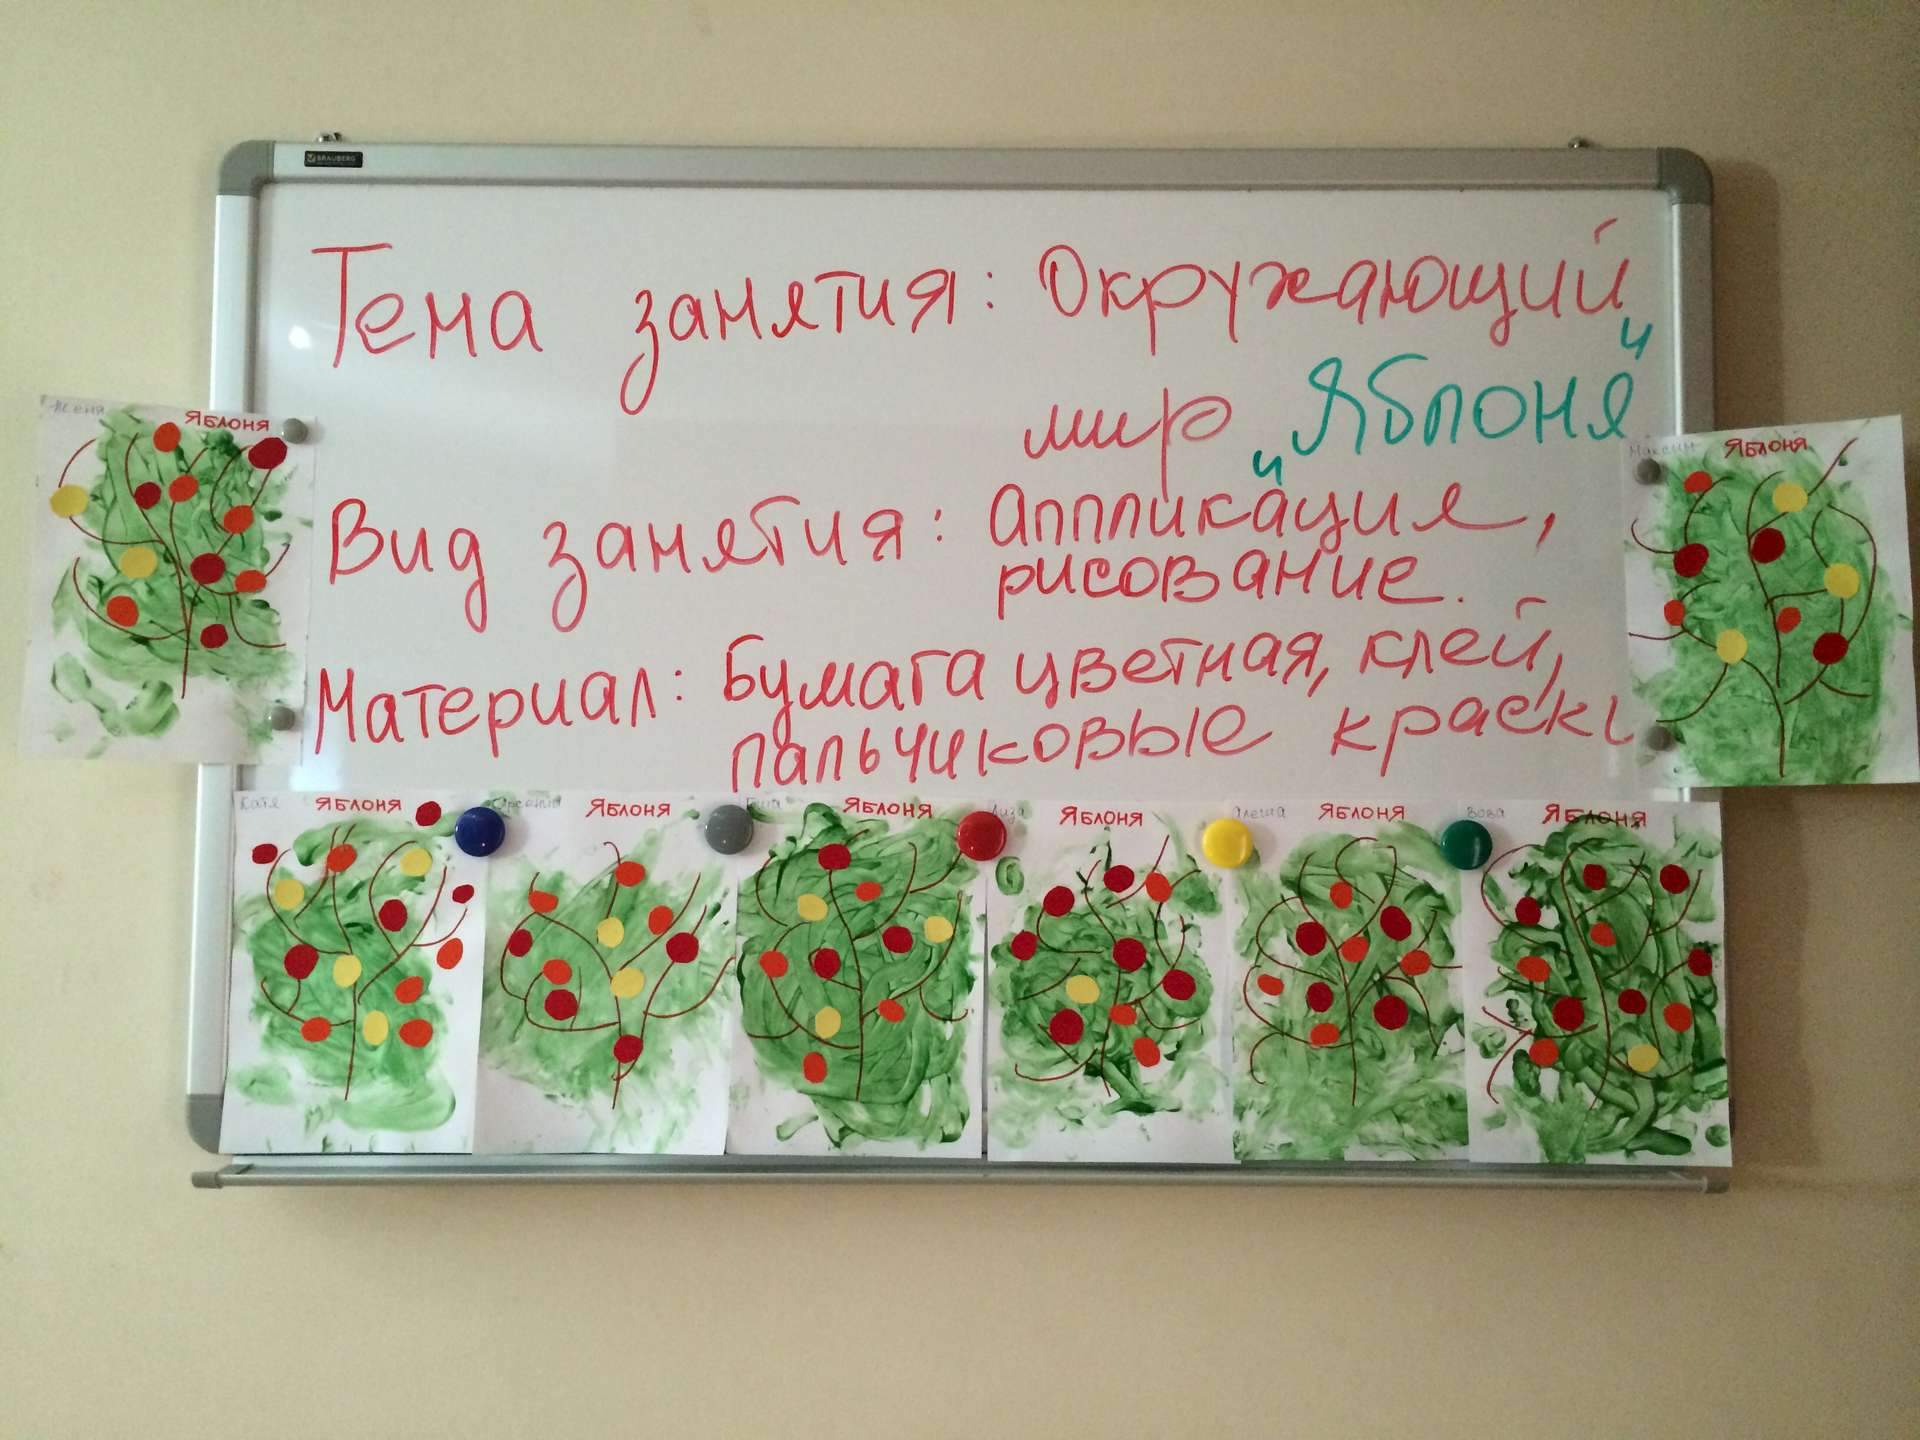 BRAUBERG
Тема занятия: Окружающий
мир "Яблоня"
Вид занятия: Аппликация,
рисование.
Материал: Бумага цветная, клей,
пальчиковые краски
Ксения ЯБЛОНЯ
Максим ЯБЛОНЯ
Катя ЯБЛОНЯ
Арсений ЯБЛОНЯ
ЯБЛОНЯ
Лиза ЯБЛОНЯ
Алеша ЯБЛОНЯ
Вова ЯБЛОНЯ